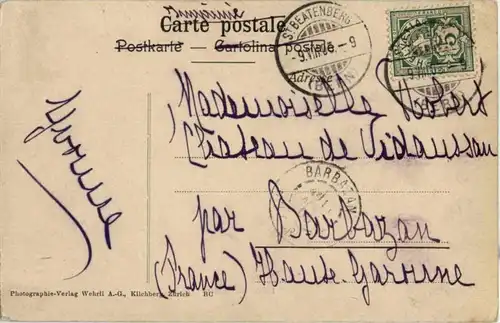 Imprimé
Carte postale
Postkarte — Cartolina postale
ST. BEATENBERG
-9
(BERN)
Adresse
Mademoiselle Hubert
Château de Vidaussan
BARBAZAN
par Barbazan
(France) Haute Garonne
Yvonne
Photographie-Verlag Wehrli A.-G., Kilchberg, Zürich BC